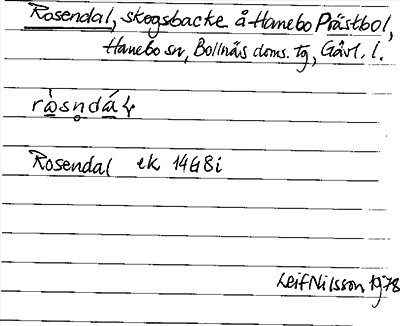 Rosendal, skogsbacke å Hanebo Prästbol,
Hanebo sn, Bollnäs doms. tg, Gävl. l.
rὰsn̥dá
Rosendal ek 14G8i
Leif Nilsson 1978